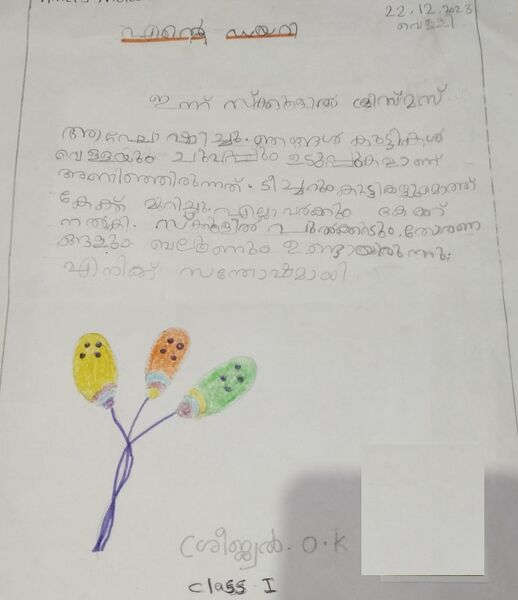 22.12.2023
വെള്ളി
എന്റെ ഡയറി
ഇന്ന് സ്ക്കൂളിൽ ക്രിസ്മസ്
ആഘോഷിച്ചു. ഞങ്ങൾ കുട്ടികൾ
വെള്ളയും ചുവപ്പും ഉടുപ്പുകളാണ്
അണിഞ്ഞിരുന്നത്. ടീച്ചറും കുട്ടികളുമൊത്ത്
കേക്ക് മുറിച്ചു. എല്ലാവർക്കും കേക്ക്
നൽകി. സ്കൂളിൽ പുൽക്കൂടും, തോരണ
ങ്ങളും ബലൂണും ഉണ്ടായിരുന്നു.
എനിക്ക് സന്തോഷമായി.
O.K
class I